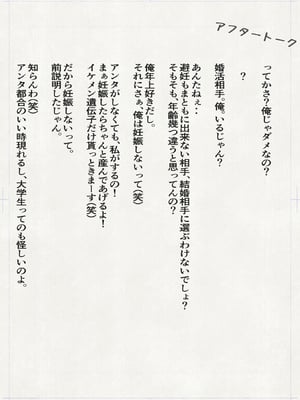 アフタートーク
ってかさ?俺じゃダメなの?
?
婚活相手、俺、いるじゃん?
あんたねぇ・・
避妊もまともに出来ない相手、結婚相手に選ぶわけないでしょ?
そもそも、年齢幾つ違うと思ってんの?
俺年上好きだし。
それにさぁ、俺は妊娠しないって(笑)
アンタがしなくても、私がするの!
まぁ妊娠したらちゃんと産んであげるよ!
イケメン遺伝子だけ貰っときまーす(笑)
だから妊娠しないって。
前説明したじゃん。
知らんわ(笑)
アンタ都合のいい時現れるし、大学生ってのも怪しいのよ。